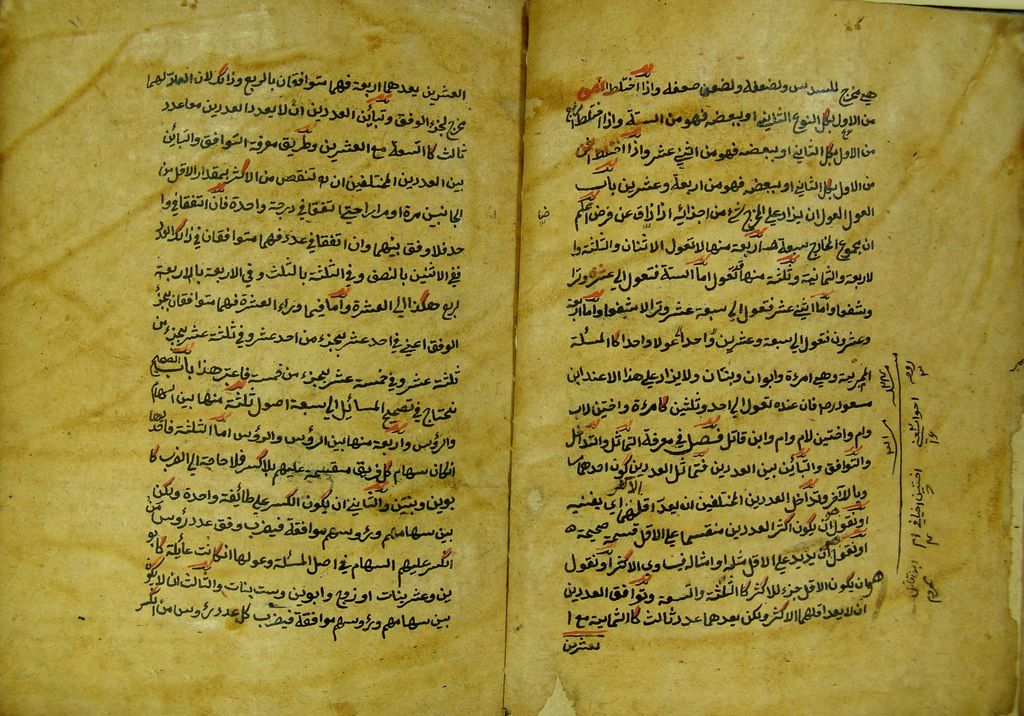 هي مخرج للسدس ولضعفه ولضعف ضعفه واذا اختلط النصف
من الاول بكل النوع الثاني او ببعضه فهو من الستة واذا اختلط الربع
من الاول بكل الثاني او ببعضه فهو من اثني عشر واذا اختلط الثمن
من الاول بكل الثاني او ببعضه فهو من اربعة وعشرين باب
العول العول ان يزاد على المخرج شيء من اجزائه اذا ضاق عن فرض اعلم
ان مجموع المخارج سبعة اربعة منها لا تعول الاثنان والثلثة وا
لاربعة والثمانية وثلثة منها قد تعول اما الستة فتعول الى عشرة وترا
وشفعا واما اثني عشر فتعول الى سبعة عشر وترا لا شفعا واما اربعة
وعشرون فتعول الى سبعة وعشرين عولا واحدا كالمسئلة
المنبرية وهي امرءة وابوان وبنتان ولا يزاد على هذا الا عند ابن
مسعود رض فان عنده تعول الى احد وثلثين كامرءة واختين لاب
وام واختين لام وام وابن قاتل فصل في معرفة التماثل والتداخل
والتوافق والتباين بين العددين فتماثل العددين كون احدهما
مساويا للآخر وتداخل العددين المختلفين ان يعد اقلهما الاكثر اي يفنيه
او نقول ان يكون اكثر العددين منقسما على الاقل قسمة صحيحة
او نقول ان يزيد على الاقل مثله او امثاله فيساوي الاكثر او نقول
هو ان يكون الاقل جزء للاكثر كالثلثة والتسعة وتوافق العددين
ان لا يعد اقلهما الاكثر ولكن يعدهما عدد ثالث كالثمانية مع ا
لعشرين
العشرين يعدهما اربعة فهما متوافقان بالربع وذلك لان العاد لهما
مخرج لجزء الوفق وتباين العددين ان لا يعد العددين معا عدد
ثالث كالتسعة مع العشرين وطريق معرفة التوافق والتباين
بين العددين المختلفين ان تنقص من الاكثر بمقدار الاقل من
الجانبين مرة او مرارا حتى اتفقا في درجة واحدة فان اتفقا في وا
حد فلا وفق بينهما وان اتفقا في عدد فهما متوافقان في ذلك العدد
ففي الاثنين بالنصف وفي الثلثة بالثلث وفي الاربعة بالاربعة
اربع هكذا الى العشرة واما فيما وراء العشرة فهما متوافقان بجزء
الوفق اعني في احد عشر بجزء من احد عشر وفي ثلثة عشر بجزء من
ثلثة عشر وفي خمسة عشر بجزء من خمسة فاعتبر هذا باب التصحيح
تحتاج في تصحيح المسائل الى سبعة اصول ثلثة منها بين السهام
والرؤس واربعة منها بين الرؤس والرؤس اما الثلثة فاحدها
ان كان سهام كل فريق منقسمة عليهم بلا كسر فلا حاجة الى الضرب كا
بوين وبنتين والثاني ان يكون الكسر على طائفة واحدة ولكن
بين سهامهم ورؤسهم موافقة فيضرب وفق عدد رؤس من
انكسر عليهم السهام في اصل المسئلة وعولها ان كانت عائلة كابو
ين وعشر بنات او زوج وابوين وست بنات والثالث ان لا يكون
بين سهامهم ورؤسهم موافقة فيضرب كل عدد رؤس من انكسر